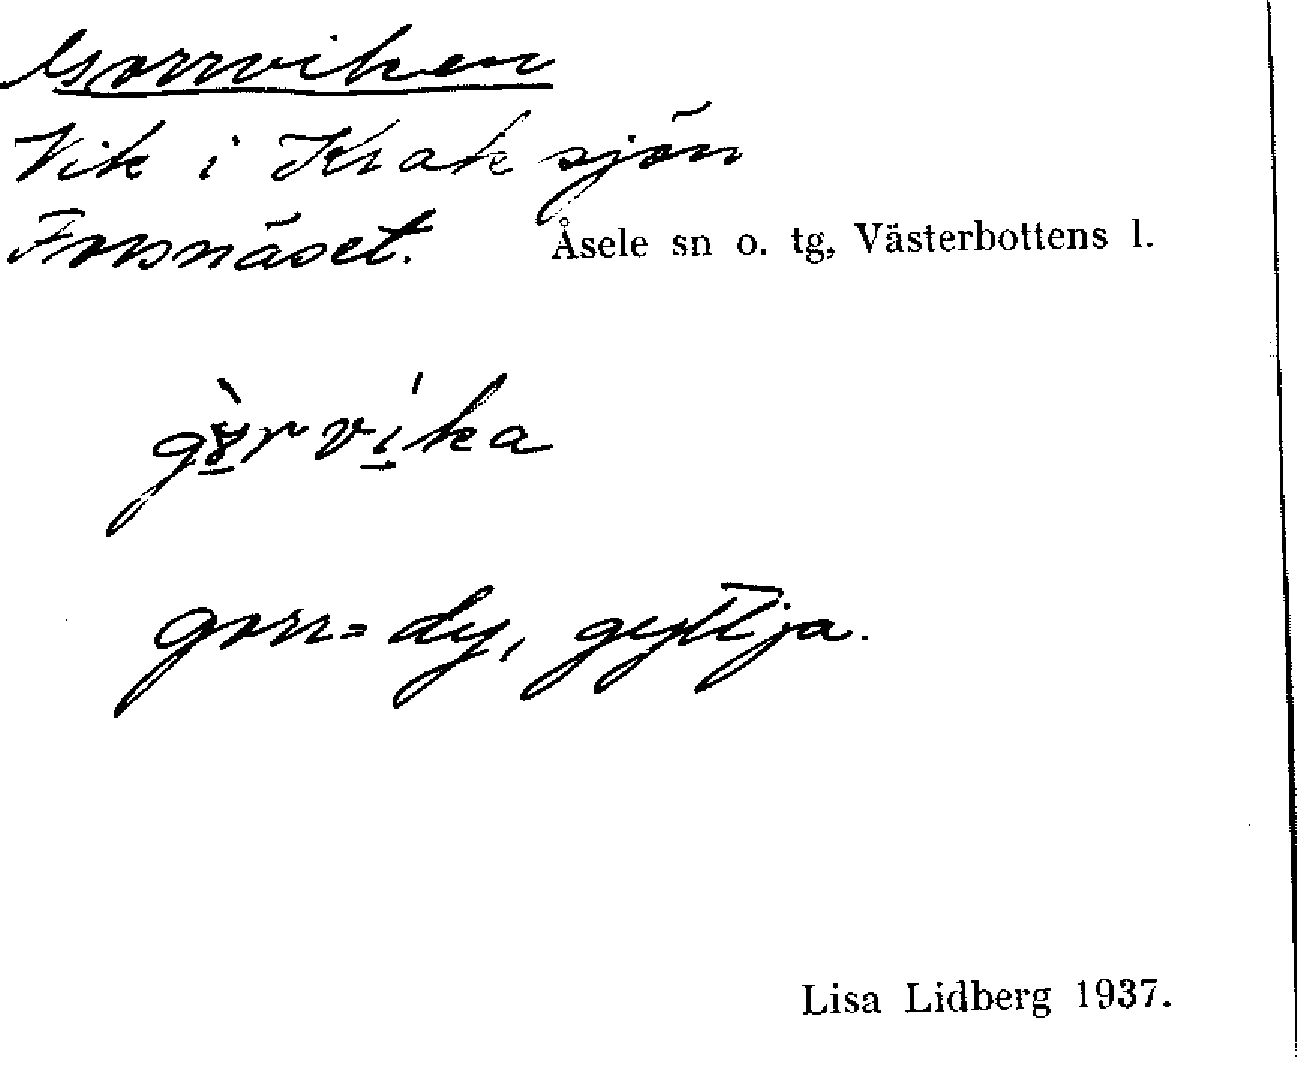 Gorrviken
Vik i Kraksjön
Forsnäset. Åsele sn o. tg, Västerbottens l.
gorr = dy, gyttja.
Lisa Lidberg 1937.